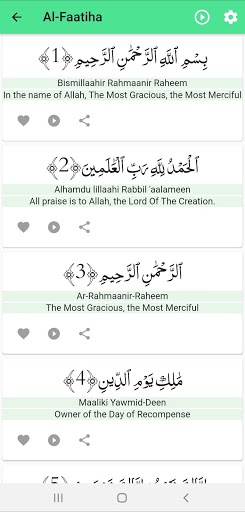 Al-Faatiha
بِسْمِ ٱللَّهِ ٱلرَّحْمَٰنِ ٱلرَّحِيمِ ﴿1﴾
Bismillaahir Rahmaanir Raheem
In the name of Allah, The Most Gracious, the Most Merciful
ٱلْحَمْدُ لِلَّهِ رَبِّ ٱلْعَٰلَمِينَ ﴿2﴾
Alhamdu lillaahi Rabbil 'aalameen
All praise is to Allah, the Lord Of The Creation.
ٱلرَّحْمَٰنِ ٱلرَّحِيمِ ﴿3﴾
Ar-Rahmaanir-Raheem
The Most Gracious, the Most Merciful
مَٰلِكِ يَوْمِ ٱلدِّينِ ﴿4﴾
Maaliki Yawmid-Deen
Owner of the Day of Recompense